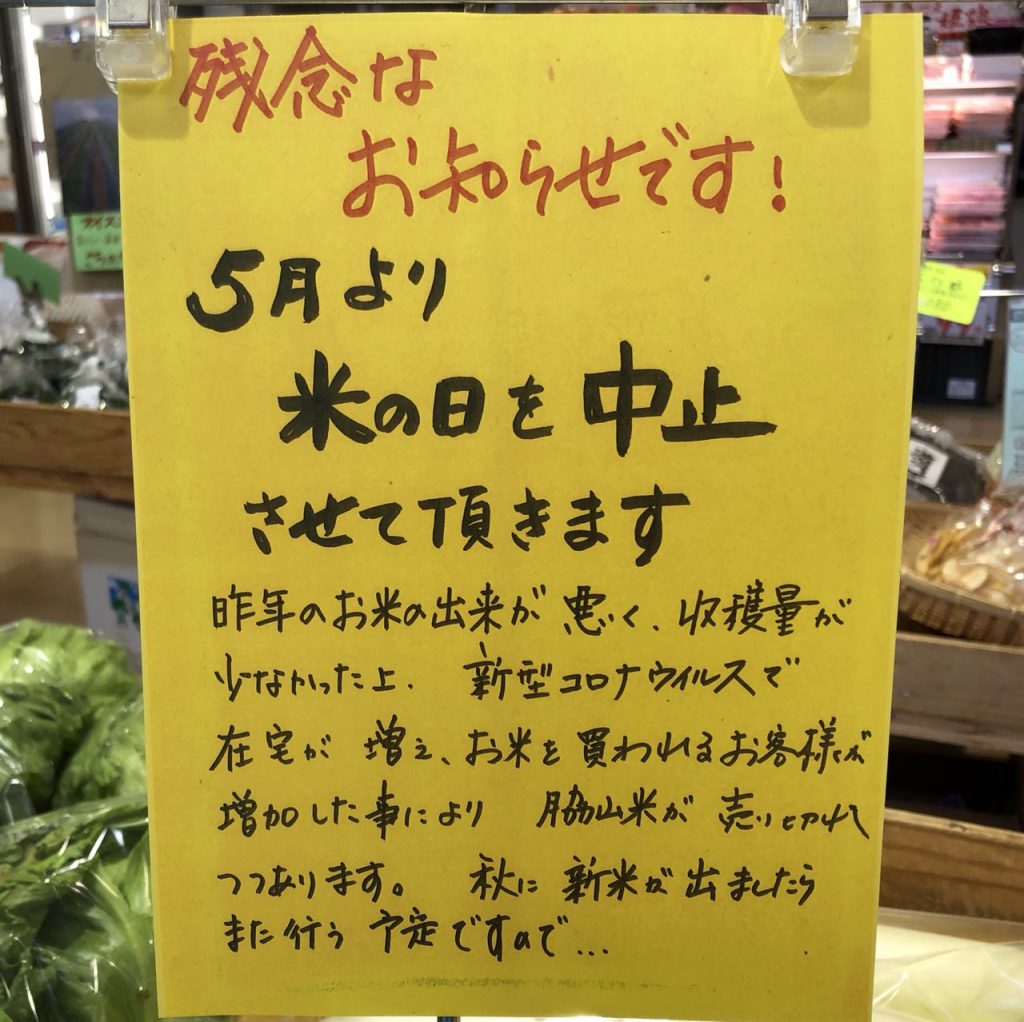 残念な
お知らせです！
5月より
米の日を中止
させて頂きます
昨年のお米の出来が悪く、収穫量が
少なかった上、新型コロナウイルスで
在宅が増え、お米を買われるお客様が
増加した事により 脇山米が売り切れ
つつあります。 秋に新米が出ましたら
また行う予定ですので…